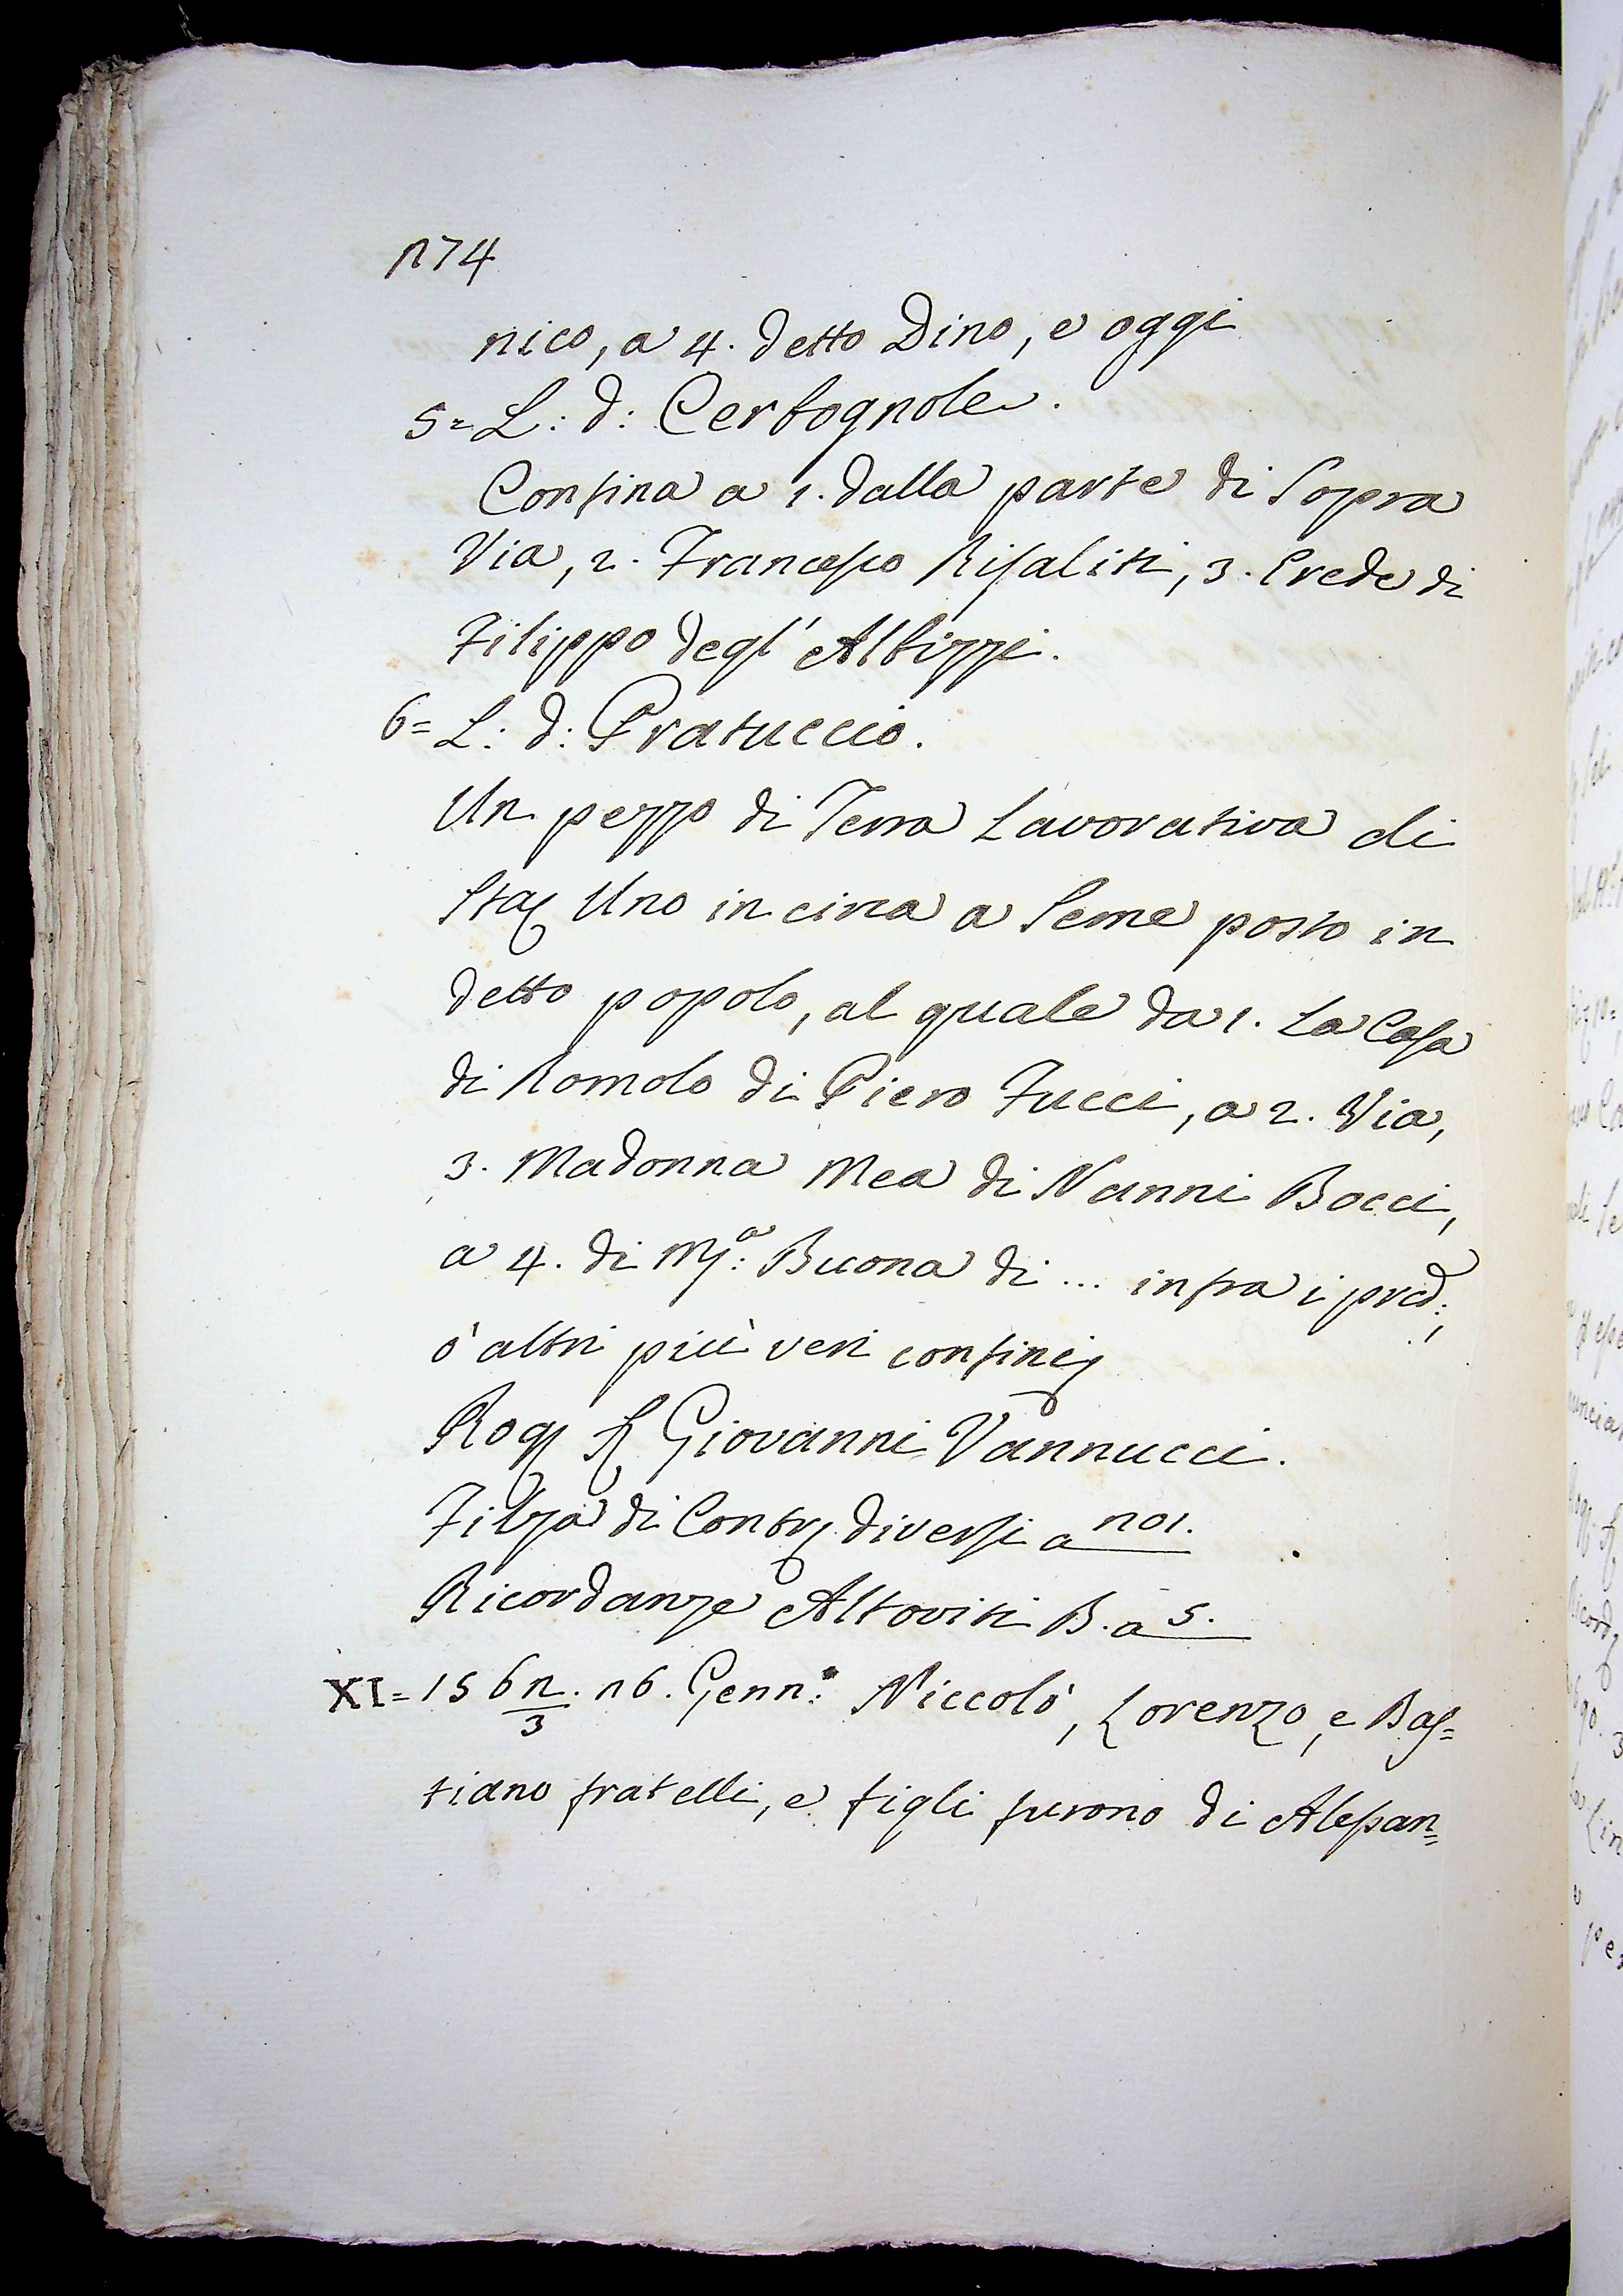 274
nico, a 4. detto Dino, e oggi
5= L: d: Cerbognole.
Confina a 1. dalla parte di Sopra
Via, 2. Francesco Risaliti, 3. Erede di
Filippo degl' Albizzi.
6= L: d: Pratuccio.
Un pezzo di Terra Lavorativa di
Sta Uno in circa a Seme posto in
detto popolo, al quale da 1. La Casa
di Romolo di Piero Fucci, a 2. Via,
3. Madonna Mea di Nanni Bocci,
a 4. di Mª: Buona di ... infra i pred:,
ò altri più veri confini
Rog S Giovanni Vannucci.
Filza di Contr diversi a 201.
Ricordanze Altoviti B. a 5.
XI= 1562/3. 26. Genn: Niccolò, Lorenzo, e Bas=
tiano fratelli, e figli furono di Alessan=